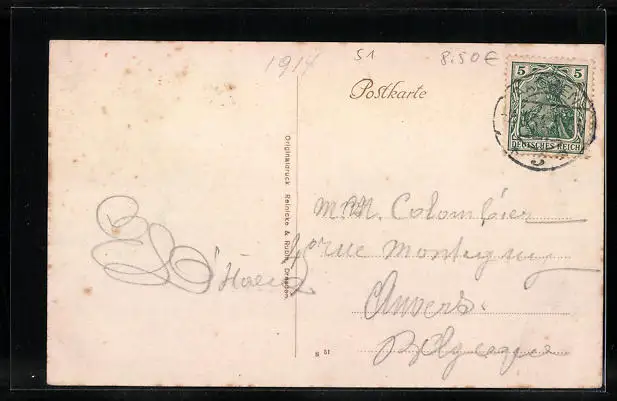 1914
51
8,50 €
Postkarte
5 5
DEUTSCHES REICH
Originaldruck Reinicke & Rubin, Dresden.
M.M. Colombier
rue Montigny
Anvers
Belgique
N 51